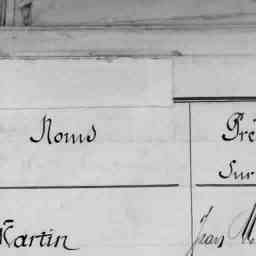 Noms Pré
Sur
Martin Jean M